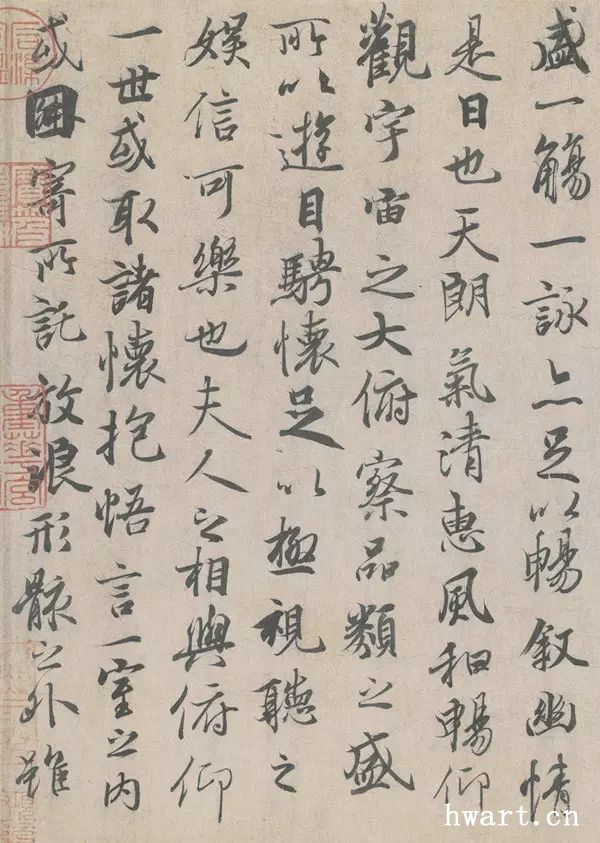 盛一觴一詠亦足以暢叙幽情
是日也天朗氣清惠風和暢仰
觀宇宙之大俯察品類之盛
所以遊目騁懷足以極視聽之
娛信可樂也夫人之相與俯仰
一世或取諸懷抱悟言一室之内
或因寄所託放浪形骸之外雖
hwart.cn